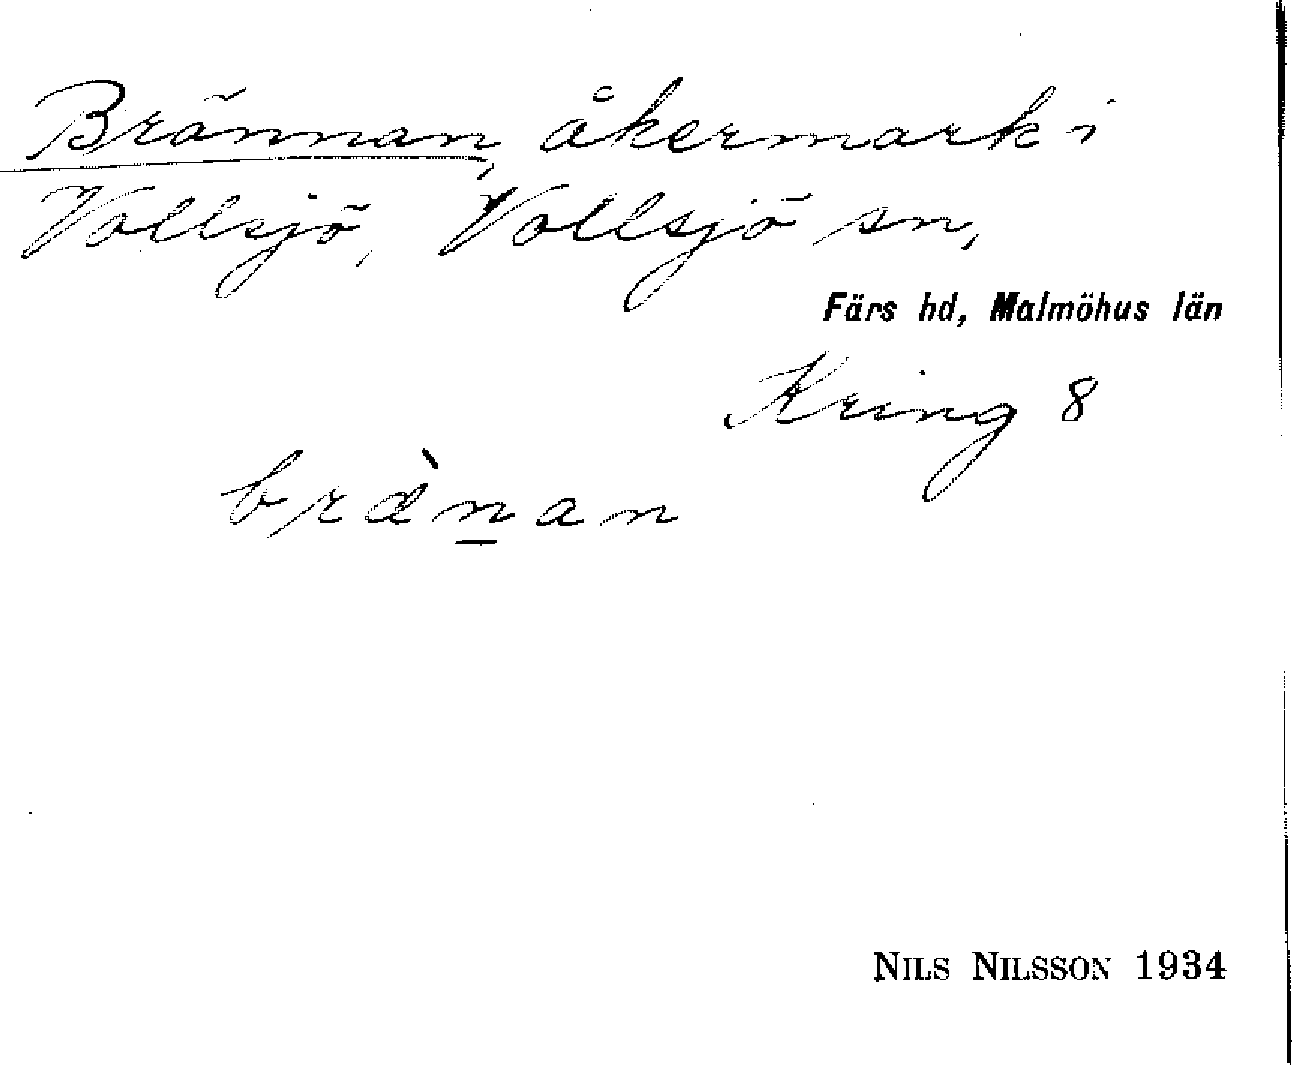 Brännan, åkermark i
Vollsjö, Vollsjö sn,
Färs hd, Malmöhus län
Kring 8
bræ̀n̠an
NILS NILSSON 1934